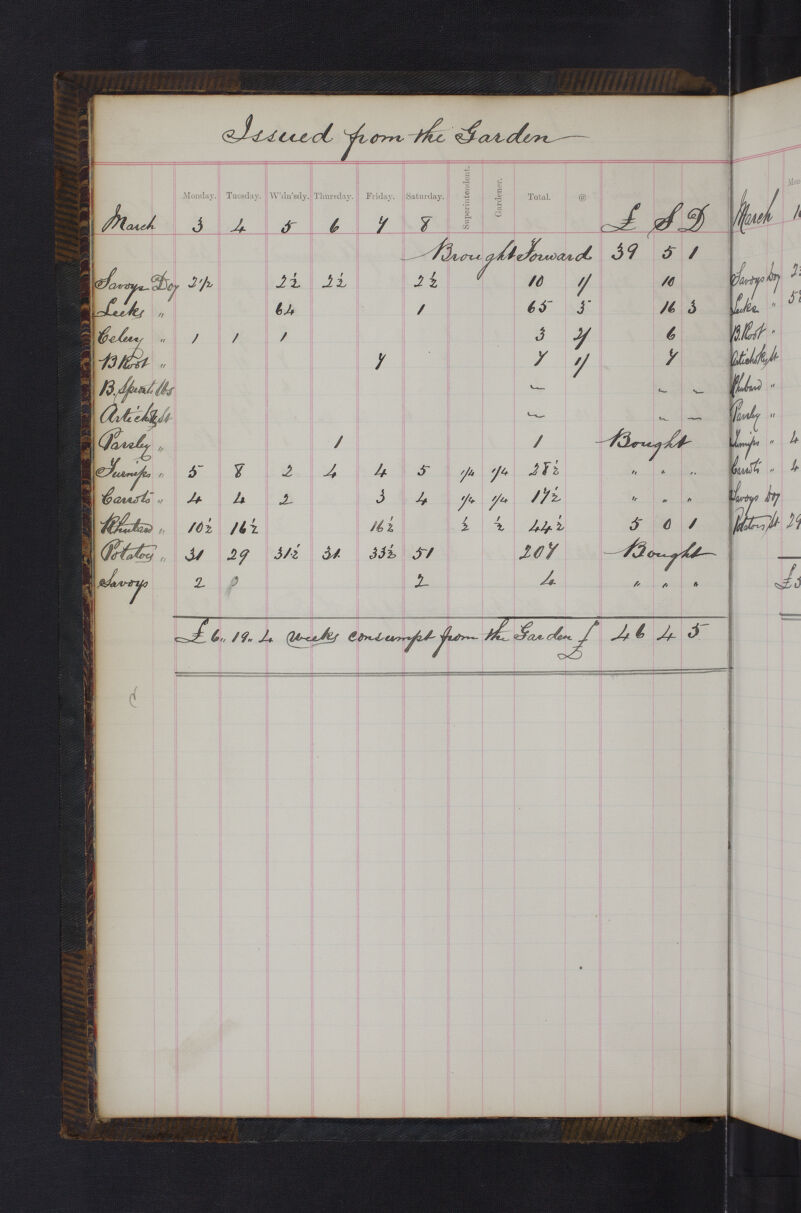 Issued from the Garden
Monday. Tuesday. W'dn'sdy. Thursday. Friday. Saturday. Superintendent. Gardener. Total. @
March 3 4 5 6 7 8 £ S D
Brought Forward 39 5 1
Savoys Doz 2½ 2½ 2½ 2½ 10 1/ 10
Leeks " 64 1 65 3 16 3
Celery " 1 1 1 3 2/ 6
B Root " 7 7 1/ 7
B. Sprouts lbs " " "
Artichks St " " "
Parsley " 1 1 Bought
Turnips " 5 8 2 4 4 5 1/4 1/4 28½ " " "
Carrots " 4 4 2 3 4 1/4 1/4 17½ " " "
Rhubarb " 10½ 16½ 16½ ½ ½ 44½ 5 0 1
Potatoes " 31 29 31½ 31 33½ 51 207 Bought
Savoys 2 2 4 " " "
£6 " 19 " 4 weeks consumpt from the Garden £ 46 4 5
March
Savoys Doz
Leeks "
B. Root "
Artichoks St
Rhubarb "
Parsley "
Turnips " 4
Carrots " 4
Savoys Doz
Potatoes St 29